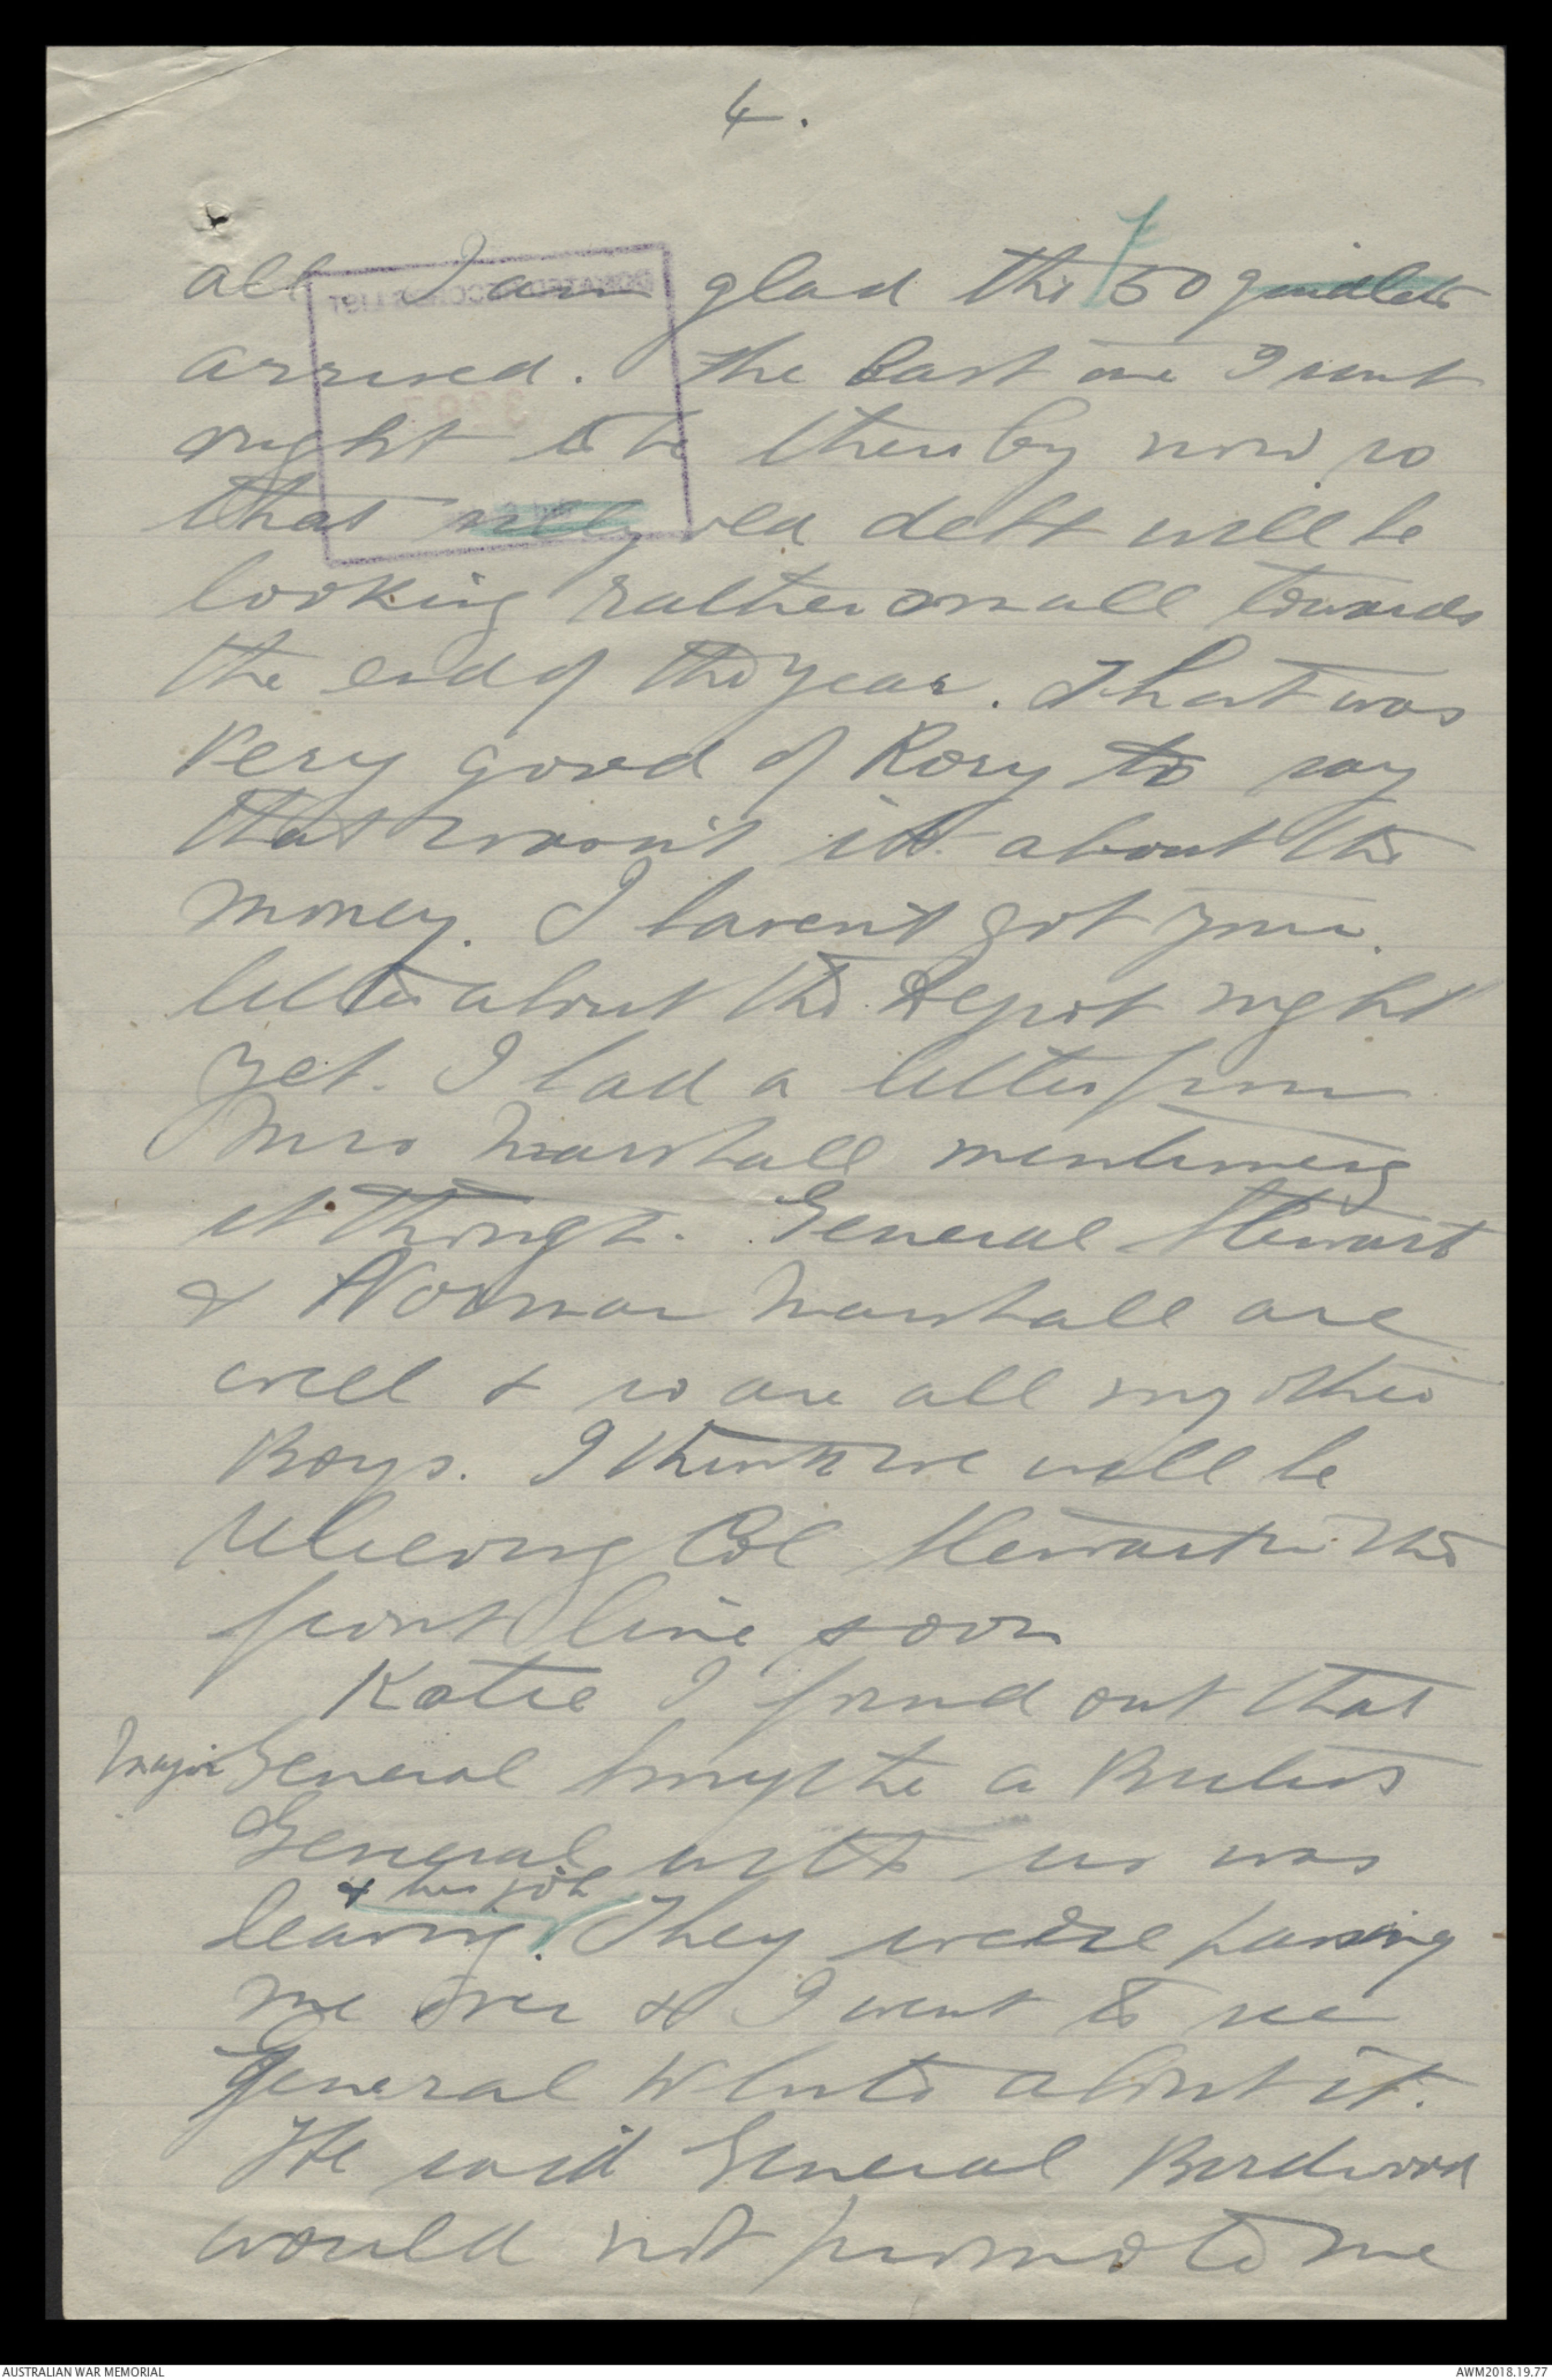 4.
all I am glad the £50
arrived. The last one I sent
ought to be there by now so
that old debt will be
looking rather small towards
the end of the year. That was
very good of Rory to say
that wasn't it about the
money. I haven't got your
letter about the Depot right
yet. I had a letter from
Mrs Marshall mentioning
it though. General Stewart
& Norman Marshall are
well & so are all my other
Boys. I think we will be
relieving Col Stewart in the
front line soon
Katie I found out that
Major General Smythe a British
General with us was
leaving & his job. They were passing
me over & I went to see
General White about it.
He said General Birdwood
would not promote me
AUSTRALIAN WAR MEMORIAL
AWM2018.19.77